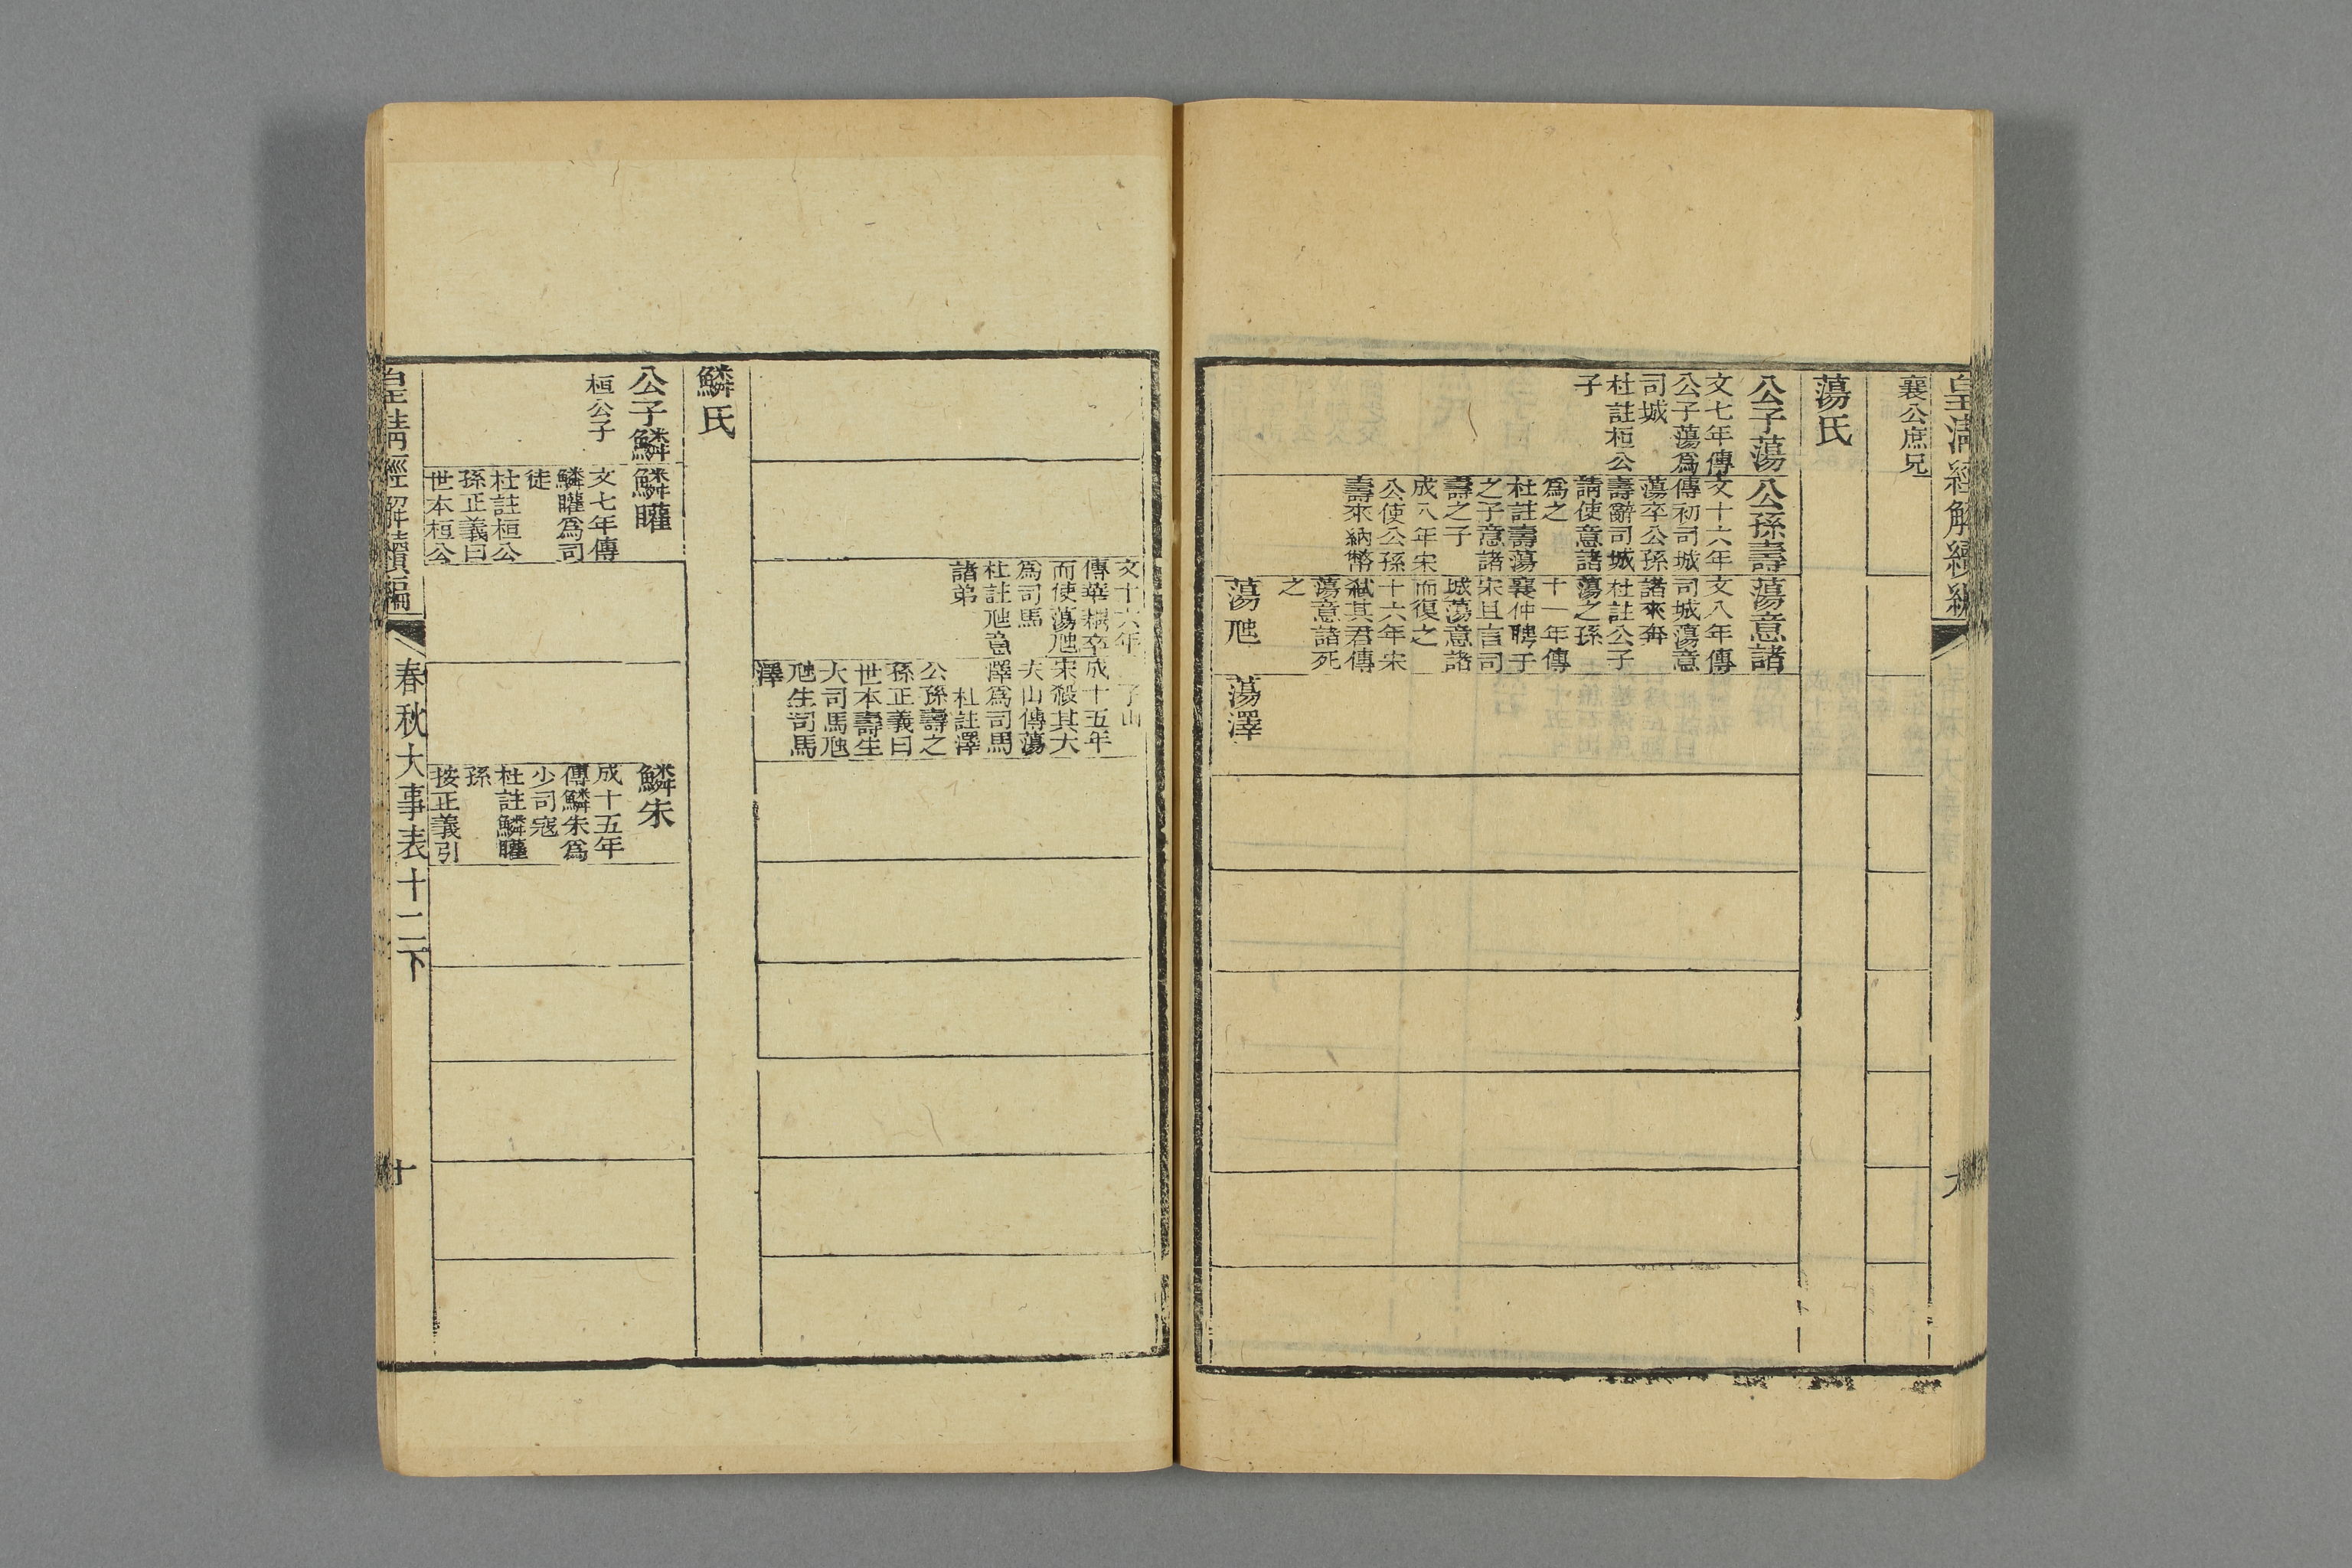 皇清經解續編
襄公庶兄
蕩氏
公子蕩
文七年傳
公子蕩爲
司城
杜註桓公
子
公孫壽
文十六年
傳初司城
蕩卒公孫
壽辭司城
請使意諸
爲之
杜註壽蕩
之子意諸
壽之子
成八年宋
公使公孫
壽來納幣
蕩意諸
文八年傳
司城蕩意
諸來奔
杜註公子
蕩之孫
十一年傳
襄仲聘于
宋且言司
城蕩意諸
而復之
十六年宋
弒其君傳
蕩意諸死
之
蕩虺
蕩澤
文十六年
傳華耦卒
而使蕩虺
爲司馬
杜註虺意
諸弟
子山
成十五年
宋殺其大
夫山傳蕩
澤爲司馬
杜註澤
公孫壽之
孫正義曰
世本壽生
大司馬虺
虺生司馬
澤
鱗氏
公子鱗
桓公子
鱗矔
文七年傳
鱗矔爲司
徒
杜註桓公
孫正義曰
世本桓公
鱗朱
成十五年
傳鱗朱爲
少司寇
杜註鱗矔
孫
按正義引
皇清經解續編
春秋大事表十二下
十